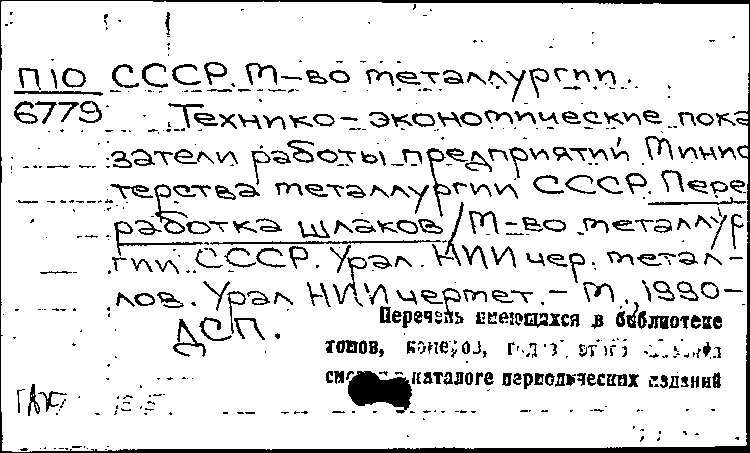 П10 СССР. М-во металлургии.
6779 Технико-экономические пока
затели работы предприятий Минис
терства металлургии СССР. Пере
работка шлаков / М-во металлур
гии СССР. Урал. НИИ чер. метал-
лов. Урал НИИчермет. - М., 1990-
ДСП.
Перечень имеющихся в библиотеке
томов, номеров,
каталоге периодических изданий